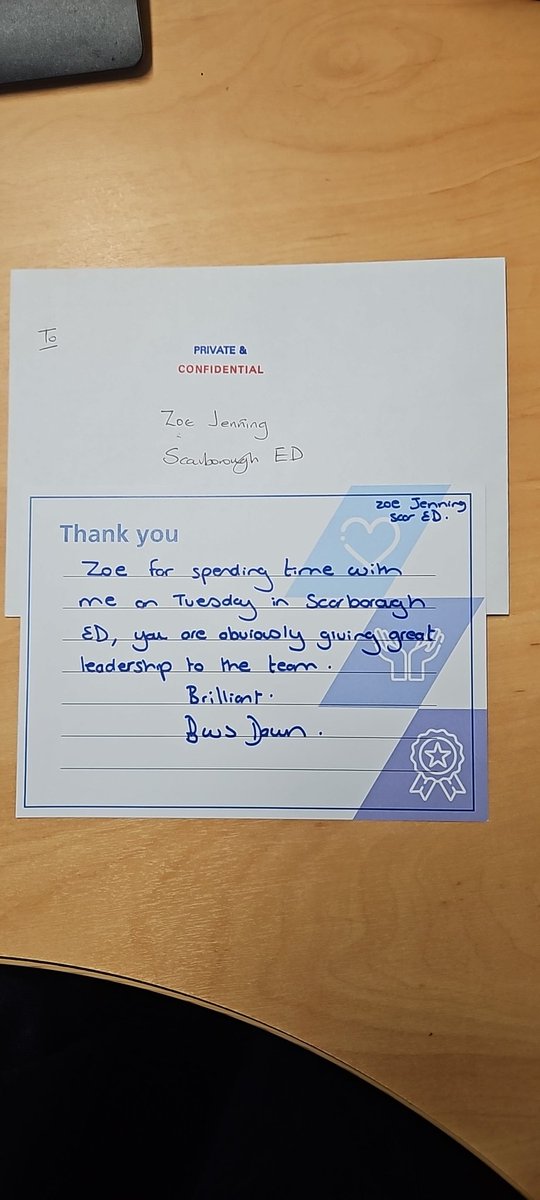 To
PRIVATE &
CONFIDENTIAL
Zoe Jenning
Scarborough ED
zoe Jenning
Scar ED.
Thank you
Zoe for spending time with
me on Tuesday in Scarborough
ED, you are obviously giving great
leadership to the team.
Brilliant.
Bws Dawn.